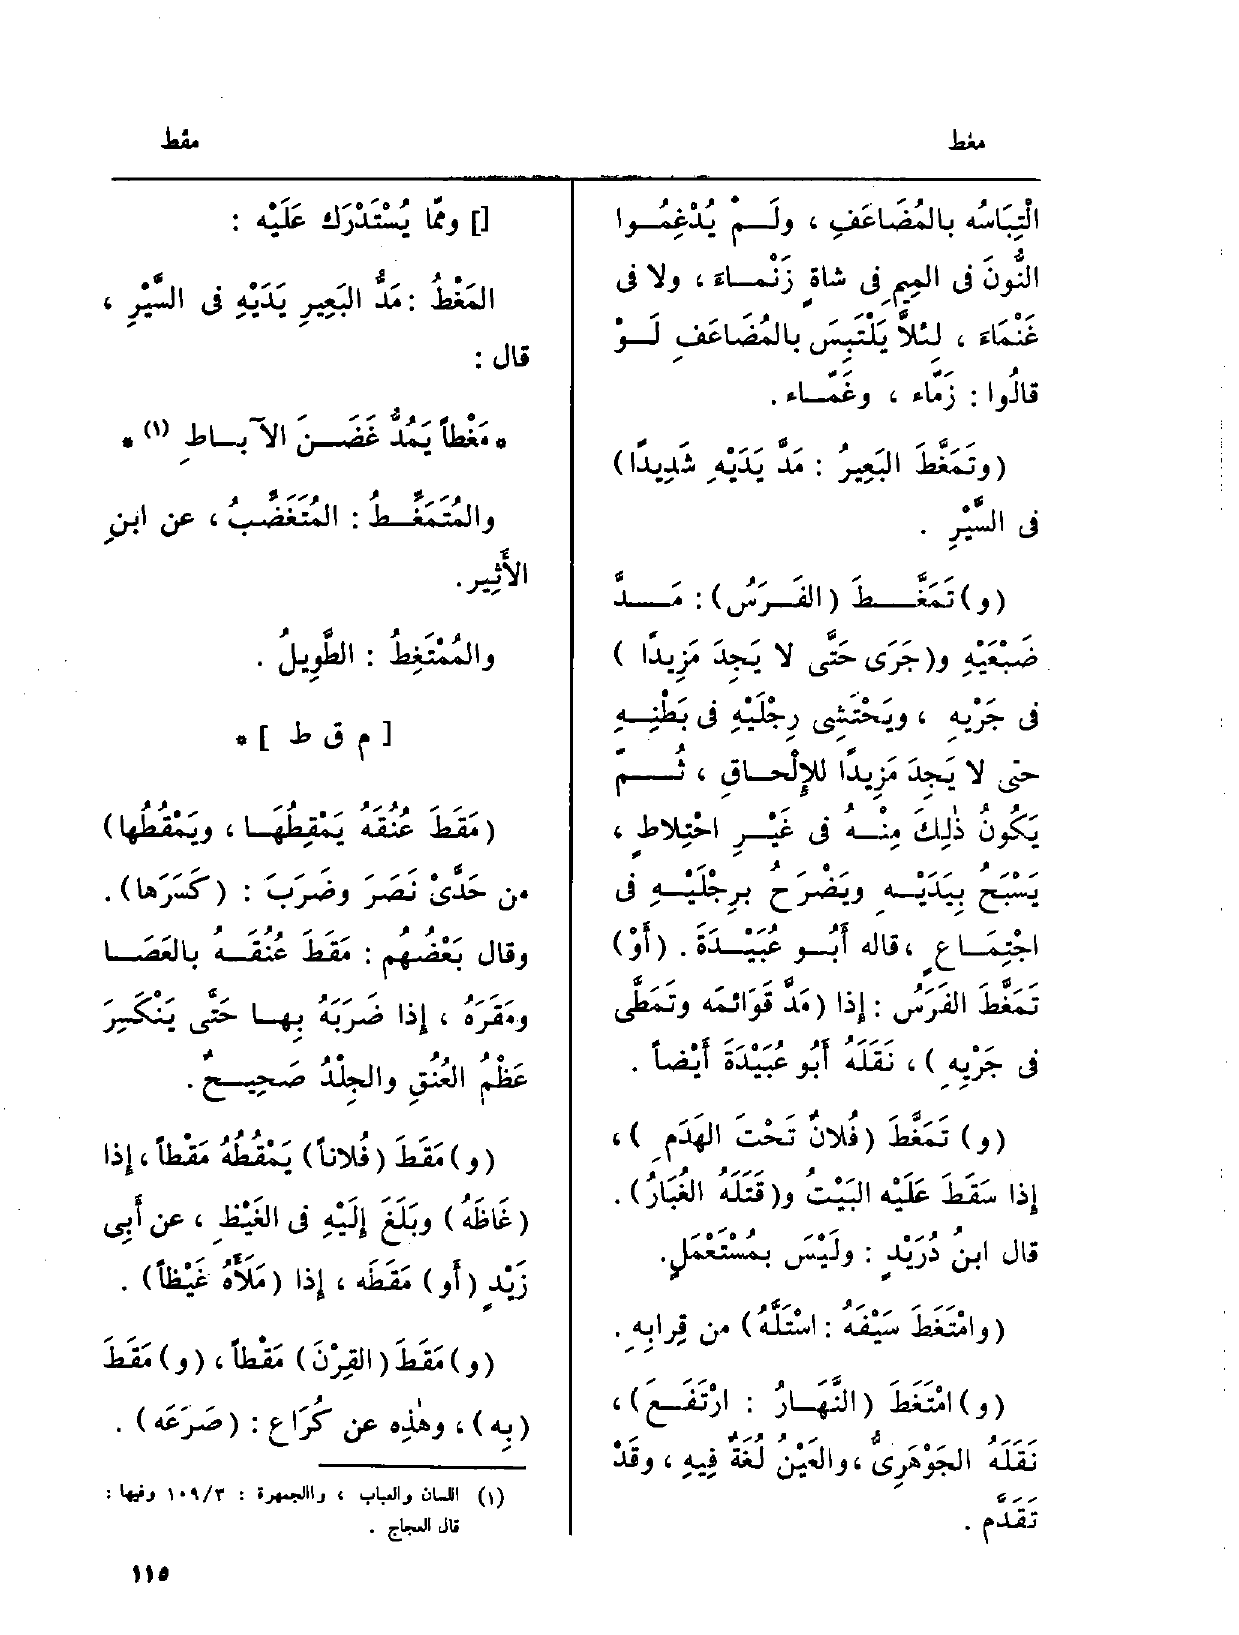 مغط
مقط
الْتِبَاسُه بالمُضَاعَفِ ، ولَــمْ يُدْغِمُــوا
النُّونَ فى المِيمِ فى شاةٍ زَنْمــاءَ ، ولا فى
غَنْمَاءَ ، لِئلاَّ يَلْتَبِسَ بالمُضَاعَفِ لَــوْ
قالُوا : زَمَّاء ، وغَمَّــاء .
(وتَمَغَّطَ البَعِيرُ : مَدَّ يَدَيْهِ شَدِيدًا)
فى السَّيْرِ .
(و) تَمَغَّــطَ (الفَــرَسُ) : مَــدَّ
ضَبْعَيْهِ و(جَرَى حَتَّى لا يَجِدَ مَزِيدًا )
فى جَرْيِه ، ويَحْتَشِى رِجْلَيْهِ فى بَطْنِــهِ
حتى لا يَجِدَ مَزِيدًا للإِلْحــاقِ ، ثُــمّ
يَكُونُ ذٰلِكَ مِنْــهُ فى غَيْــرِ اخْتِلاطٍ ،
يَسْبَحُ بِيَدَيْــهِ ويَضْرَحُ بِرِجْلَيْــهِ فى
اجْتِمَــاعٍ ، قاله أَبُــو عُبَيْــدَةَ . (أَوْ)
تَمَغَّطَ الفَرَسُ : إذا (مَدَّ قَوَائمَه وتَمَطَّى
فى جَرْيِهِ ) ، نَقَلَهُ أَبُو عُبَيْدَةَ أَيْضاً .
(و) تَمَغَّطَ (فُلانٌ تَحْتَ الهَدَمِ ) ،
إذا سَقَطَ عَلَيْه البَيْتُ و(قَتَلَهُ الغُبَارُ) .
قال ابنُ دُرَيْدٍ : ولَيْسَ بمُسْتَعْمَلٍ.
(وامْتَغَطَ سَيْفَهُ : اسْتَلَّهُ) من قِرابِهِ .
(و) امْتَغَطَ (النَّهَــارُ : ارْتَفَــعَ) ،
نَقَلَهُ الجَوْهَرِىُّ ، والعَيْنُ لُغَةٌ فِيهِ ، وقَدْ
تَقَدَّم .
[] وممّا يُسْتَدْرَك عَلَيْه :
المَغْطُ : مَدُّ البَعِيرِ يَدَيْهِ فى السَّيْرِ ،
قال :
* مَغْطاً يَمُدُّ غَضَــنَ الآبــاطِ (١) *
والمُتَمَغِّــطُ : المُتَغَضِّبُ ، عن ابنِ
الأَثِير.
والمُمْتَغِطُ : الطَّوِيلُ .
[ م ق ط ] *
(مَقَطَ عُنُقَهُ يَمْقِطُهَــا ، ويَمْقُطُها)
من حَدَّىْ نَصَرَ وضَرَبَ : (كَسَرَها) .
وقال بَعْضُهُم : مَقَطَ عُنُقَــهُ بالعَصَــا
ومَقَرَهُ ، إذا ضَرَبَهُ بِهــا حَتَّى يَنْكَسِرَ
عَظْمُ العُنُقِ والجِلْدُ صَحِيــحٌ .
(و) مَقَطَ (فُلاناً) يَمْقُطُهُ مَقْطاً ، إذا
(غَاظَهُ) وبَلَغَ إلَيْهِ فى الغَيْظِ ، عن أَبِى
زَيْدٍ (أَو) مَقَطَه ، إذا (مَلَأَهُ غَيْظاً) .
(و) مَقَطَ (القِرْنَ) مَقْطاً ، (و) مَقَطَ
(بِهِ) ، وهٰذِه عن كُرَاع : (صَرَعَه) .
(١) اللسان والعباب ، والجمهرة : ١٠٩/٣ وفيها :
قال العجاج .
١١٥